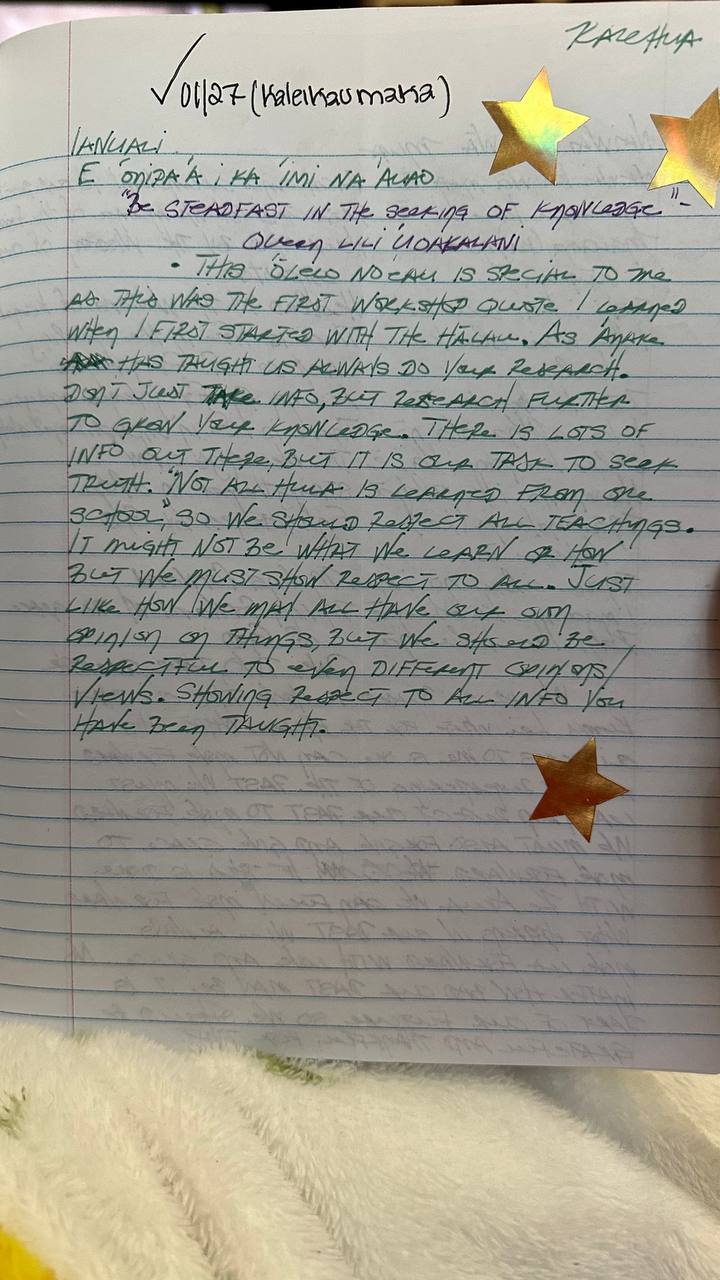 Kalehua
✓ 01/27 (Kaleikaumaka)
IANUALI
E ʻONIPAʻA I KA ʻIMI NA ʻAUAO
"Be STEADFAST IN THE SEEKING OF KNOWLEDGE" -
QUEEN LILIʻUOAKALANI
• THIS ʻŌLELO NOʻEAU IS SPECIAL TO ME
AS THIS WAS THE FIRST WORKSHOP QUOTE I LEARNED
WHEN I FIRST STARTED WITH THE HĀLAU. AS ʻANAKE
HAS TAUGHT US ALWAYS DO YOUR RESEARCH.
DON'T JUST TAKE INFO, BUT RESEARCH FURTHER
TO GROW YOUR KNOWLEDGE. THERE IS LOTS OF
INFO OUT THERE, BUT IT IS OUR TASK TO SEEK
TRUTH. "NOT ALL HULA IS LEARNED FROM ONE
SCHOOL," SO WE SHOULD RESPECT ALL TEACHINGS.
IT MIGHT NOT BE WHAT WE LEARN OR HOW
BUT WE MUST SHOW RESPECT TO ALL. JUST
LIKE HOW WE MAY ALL HAVE OUR OWN
OPINION ON THINGS, BUT WE SHOULD BE
RESPECTFUL TO EVEN DIFFERENT OPINIONS/
VIEWS. SHOWING RESPECT TO ALL INFO YOU
HAVE BEEN TAUGHT.